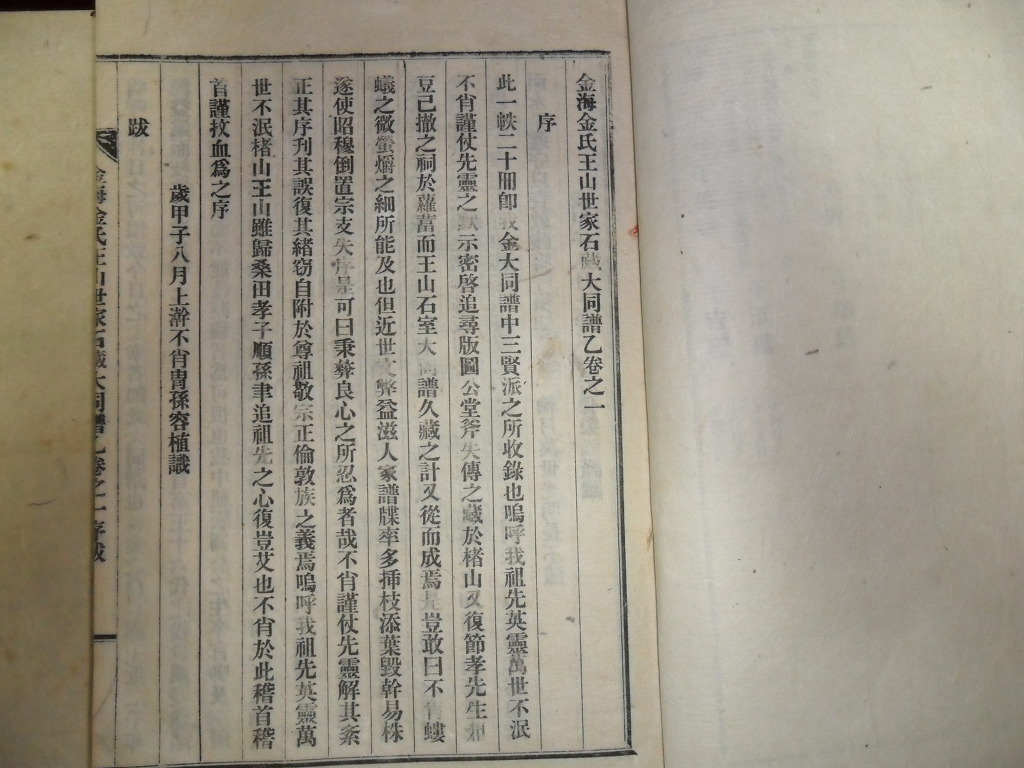 金海金氏王山世家石藏大同譜乙卷之一
序
此一帙二十冊卽我金大同譜中三賢派之所收錄也嗚呼我祖先英靈萬世不泯
不肖謹仗先靈之默示密啓追尋版圖公堂斧失傳之藏於楮山又復節孝先生
豆已撤之祠於蘿葍而王山石室大同譜久藏之計又從而成焉是豈敢曰不肖螻
蟻之微螢爝之細所能及也但近世文弊益滋人家譜牒率多揷枝添葉毀幹易株
遂使昭穆倒置宗支失序是可曰秉彝良心之所忍爲者哉不肖謹仗先靈解其紊
正其序刋其誤復其緖窃自附於尊祖敬宗正倫敦族之義焉嗚呼我祖先英靈萬
世不泯楮山王山雖歸桑田孝子順孫聿追祖先之心復豈艾也不肖於此稽首稽
首謹抆血爲之序
歲甲子八月上澣不肖胄孫容植識
跋
金海金氏王山世家石藏大同譜乙卷之一 序跋